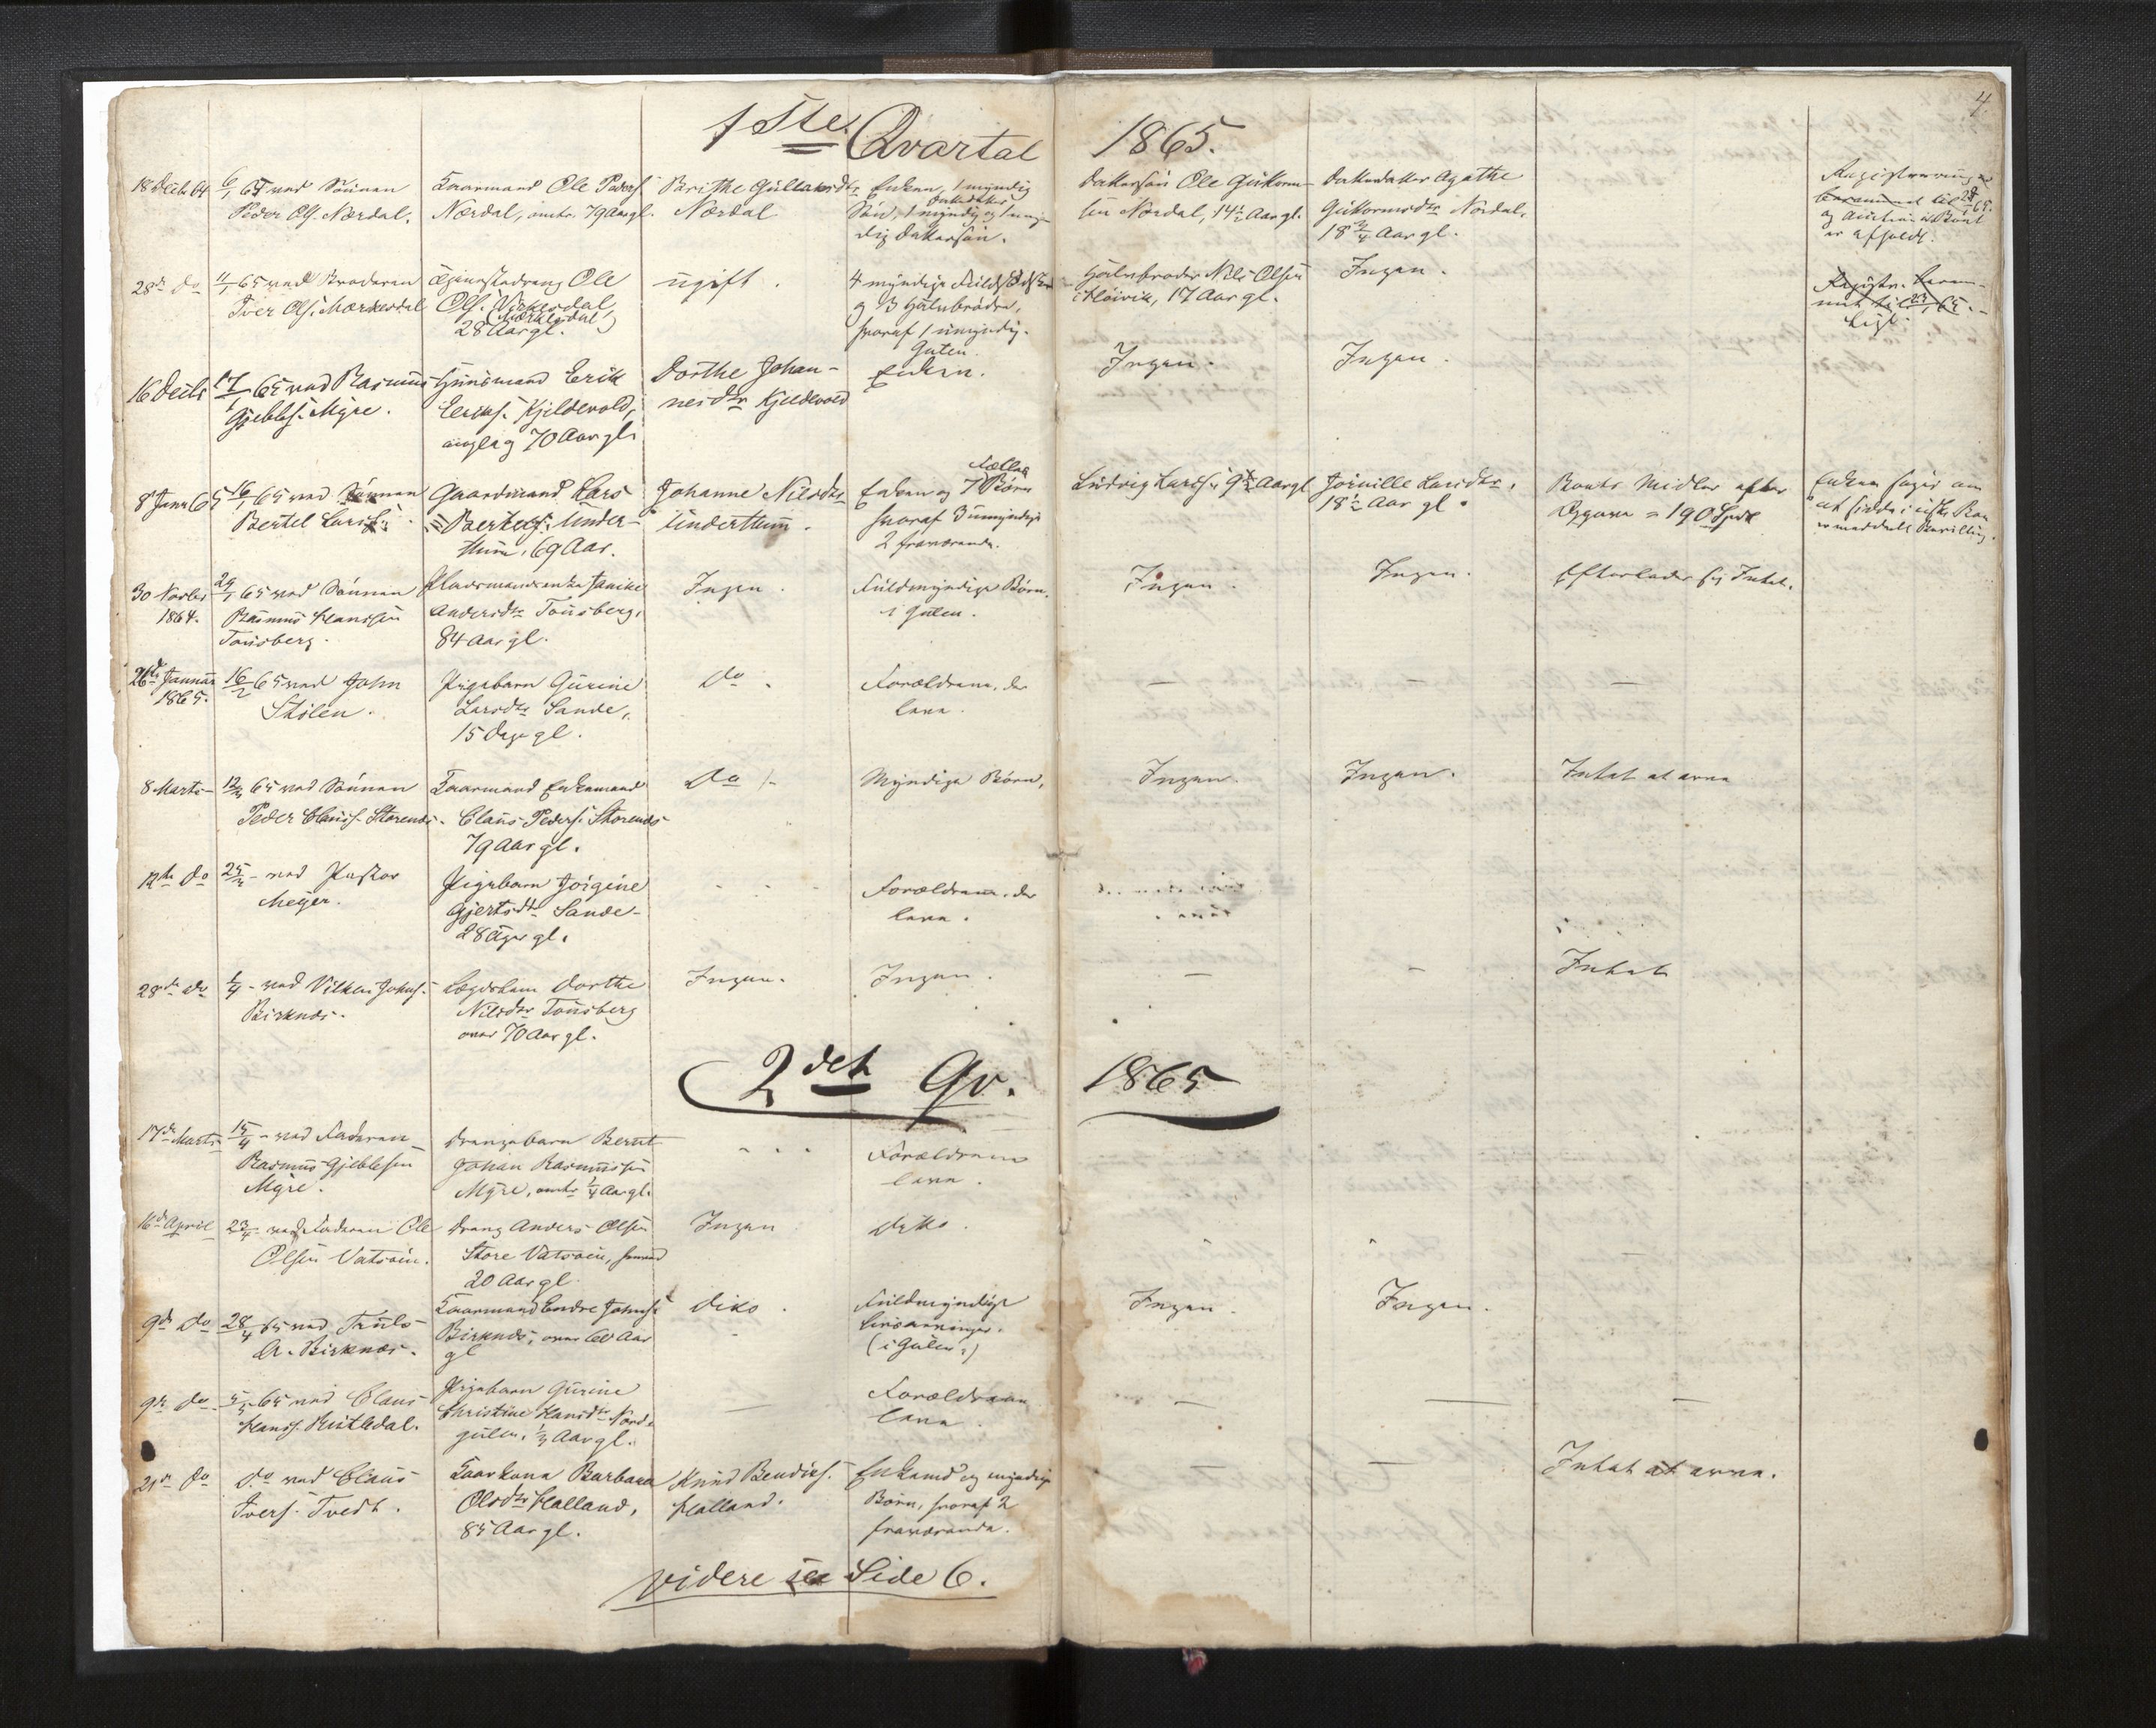 4.
1ste Qvartal 1865.
18 Decb 64
6/1 65 ved Sønnen
Peder Ols. Nordal.
Kaarmand Ole Peders.
Nordal, omtr. 79 Aar gl.
Brithe Guttormsdtr
Nordal
Enken, 1 myndig
Søn, 1 myndig og 1 umyn-
dig Dattersøn.
Dattersøn Ole Guttorm-
sen Nordal, 14½ Aar gl.
Datterdatter Agathe
Guttormsdtr Nordal,
18¾ Aar gl.
Registrering er
berammet til
og Auction i Boet
er afholdt.
28de do
11/1 65 ved Broderen
Iver Ols. Mærkesdal
Tjenestedreng Ole
Ols. Virkesdal,
(Mærkesdal)
28 Aar gl.
ugift.
4 myndige Fuldsødskende
og 3 Halvbrødre,
hvoraf 1 umyndig.
Gulen.
Halvbroder Nils Olsen
Høivik, 17 Aar gl.
Ingen.
Registr. beram-
met til 23/1 65.
16 Decb
17/1 65 ved Rasmus
Gjebles. Myre.
Huusmand Erik
Eriks. Kjeldevold,
angivelig 70 Aar gl.
Dorthe Johan-
nesdtr Kjeldevold
Enken.
Ingen.
Ingen.
8 Janr 65
16/1 65 ved Sønnen
Bertel Larsen.
Gaardmand Lars
Bertels. Under-
thun, 69 Aar.
Johanne Nilsdtr
Underthun.
Enken og 7 Fælles
Børn
hvoraf 3 umyndige
2 fraværende.
Ludvig Larsen 9½ Aar gl.
Joruille Larsdtr,
18½ Aar gl.
Boets Midler efter
Opgave = 190 Spd
Enken søger om
at sidde i uskiftet Bo
er meddelt Bevilling.
30 Novbr
1864.
29/1 65 ved Sønnen
Rasmus Hanssen
Tønsberg.
Huusmandsenke Janike
Andersdtr Tønsberg,
84 Aar gl.
Ingen.
Fuldmyndige Børn.
i Gulen.
Ingen.
Ingen.
Efterlader sig Intet.
26de Januar
1865.
16/2 65 ved John
Stølen.
Pigebarn Gurine
Larsdtr Sande,
15 Dage gl.
do.
Forældrene, der
leve.
8 Marts
12/3 65 ved Sønnen
Peder Claus. Storenes.
Kaarmand Enkemand
Claus Peders. Storenes
79 Aar gl.
do
Myndige Børn.
Ingen.
Ingen.
Intet at arve
12te do
25/3 - ved Pastor
Meyer.
Pigebarn Jorgine
Gjertsdtr Sande
28 Uger gl.
Forældrene, der
leve.
28de do
1/4 - ved Vilken Johns.
Birknes.
Lægdslem Dorthe
Nilsdtr Tønsberg
over 70 Aar gl.
Ingen.
Ingen.
Intet
2det Qv. 1865
17de Marts
15/4 - ved Faderen
Rasmus Gjeblesen
Myre.
Drengebarn Bernt
Johan Rasmussen
Myre, omtr ¼ Aar gl.
Forældrene
leve.
16de April
23/4 - ved Faderen Ole
Olsen Vatsøien.
Dreng Anders Olsen
Store Vatsøien,
20 Aar gl.
Ingen
ditto.
9de do
28/4 65 ved Truls
A. Birknes.
Kaarmand Endre Johns.
Birknes, over 60 Aar
gl
ditto.
Fuldmyndige
Livsarvinger.
(i Gulen.)
Ingen.
Ingen.
9de do
5/5 65 ved Claus
Hans. Ristedal.
Pigebarn Gurine
Christine Hansdtr Nord-
gulen, ½ Aar gl.
Forældrene
leve.
21de do
do ved Claus
Ivers. Tvedt.
Kaarkone Barbara
Olsdtr Halland,
85 Aar gl.
Knud Bendiks.
Halland.
Enkemd og myndige
Børn, hvoraf 2
fraværende.
Intet at arve.
videre see Side 6.